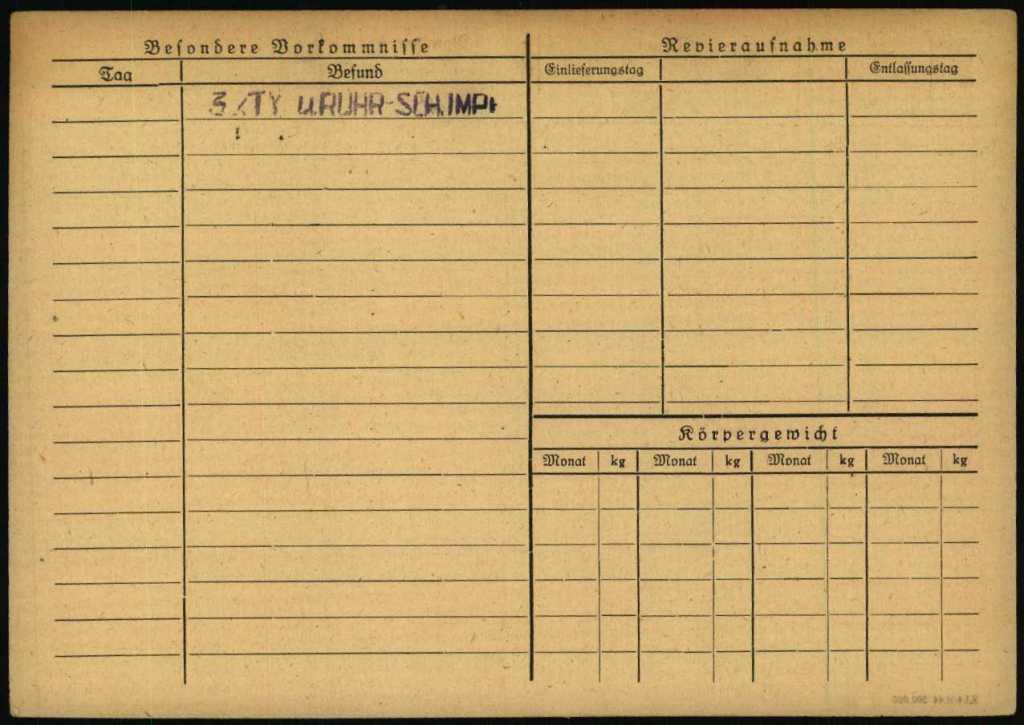 Besondere Vorkommnisse
Tag Befund
3 x TY U.RUHR-SCH.IMPF
Revieraufnahme
Einlieferungstag Entlassungstag
Körpergewicht
Monat kg Monat kg Monat kg Monat kg